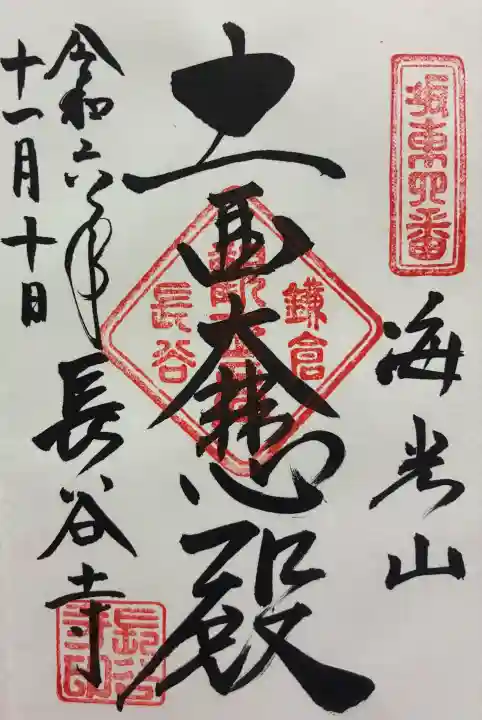 坂東四番
海光山
十一面大悲殿
鎌倉
長谷
令和六年
十一月十日
長谷寺
長谷寺印